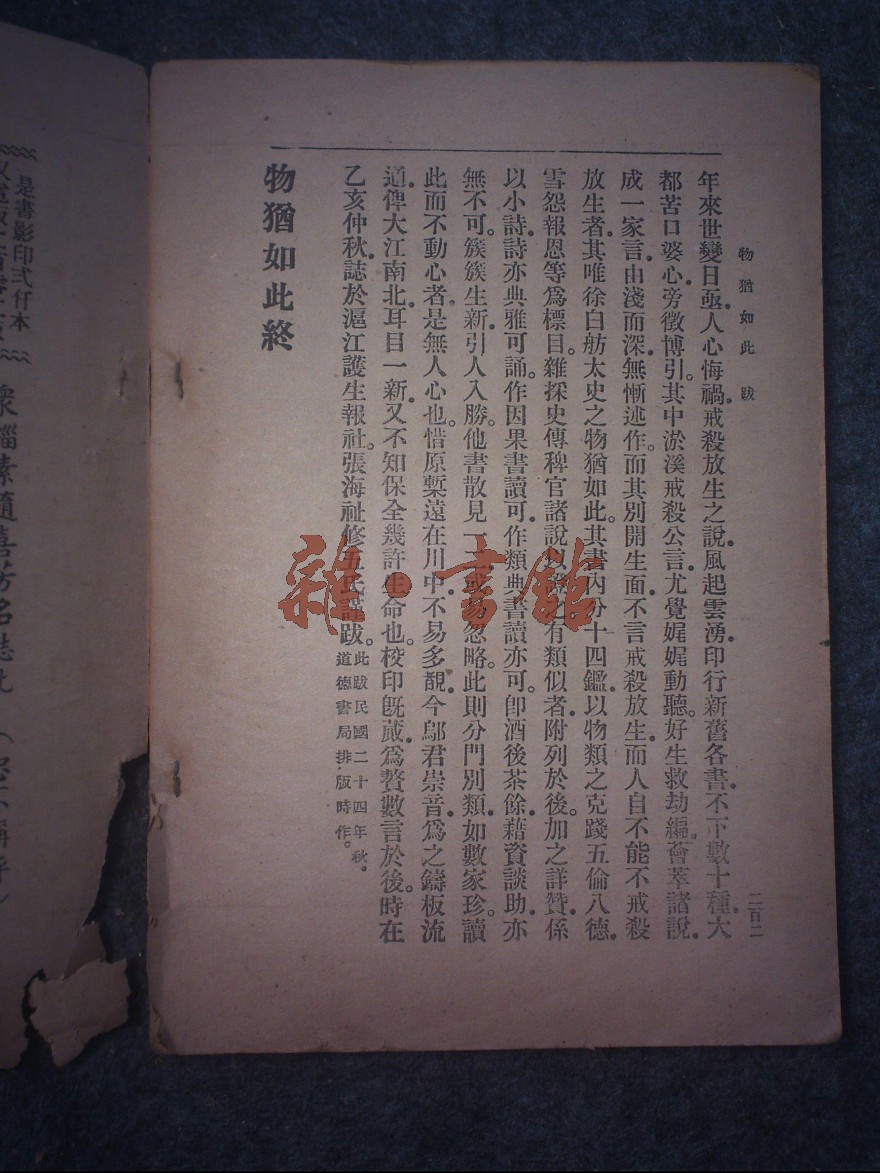 物猶如此 跋
二百二
年來世變日亟。人心悔禍。戒殺放生之說。風起雲湧。印行新舊各書。不下數十種。大
都苦口婆心。旁徵博引。其中淤溪戒殺公言。尤覺娓娓動聽。好生救劫編。薈萃諸說。
成一家言。由淺而深。無慚述作。而其別開生面。不言戒殺放生。而人自不能不戒殺
放生者。其唯徐白舫太史之物猶如此。其書內分十四鑑。以物類之克踐五倫八德。
雪怨報恩等爲標目。雜採史傳稗官諸說以 之。有類似者。附列於後。加之詳贊。係
以小詩。詩亦典雅可誦。作因果書讀可。作類典書讀亦可。卽酒後茶餘。藉資談助。亦
無不可。簇簇生新。引人入勝。他書散見一二。或易忽略。此則分門別類。如數家珍。讀
此而不動心者。是無人心也。惜原槧遠在川中。不易多覩。今鄔君崇音。爲之鑄板流
道。俾大江南北。耳目一新。又不知保全幾許生命也。校印旣蕆。爲贅數言於後。時在
乙亥仲秋。誌於滬江護生報社。張海祉修五氏謹跋。
此跋民國二十四年秋。
道德書局排版時作。
物猶如此終
雜·書館
是書影印弍仟本
眾緇素隨喜芳名誌